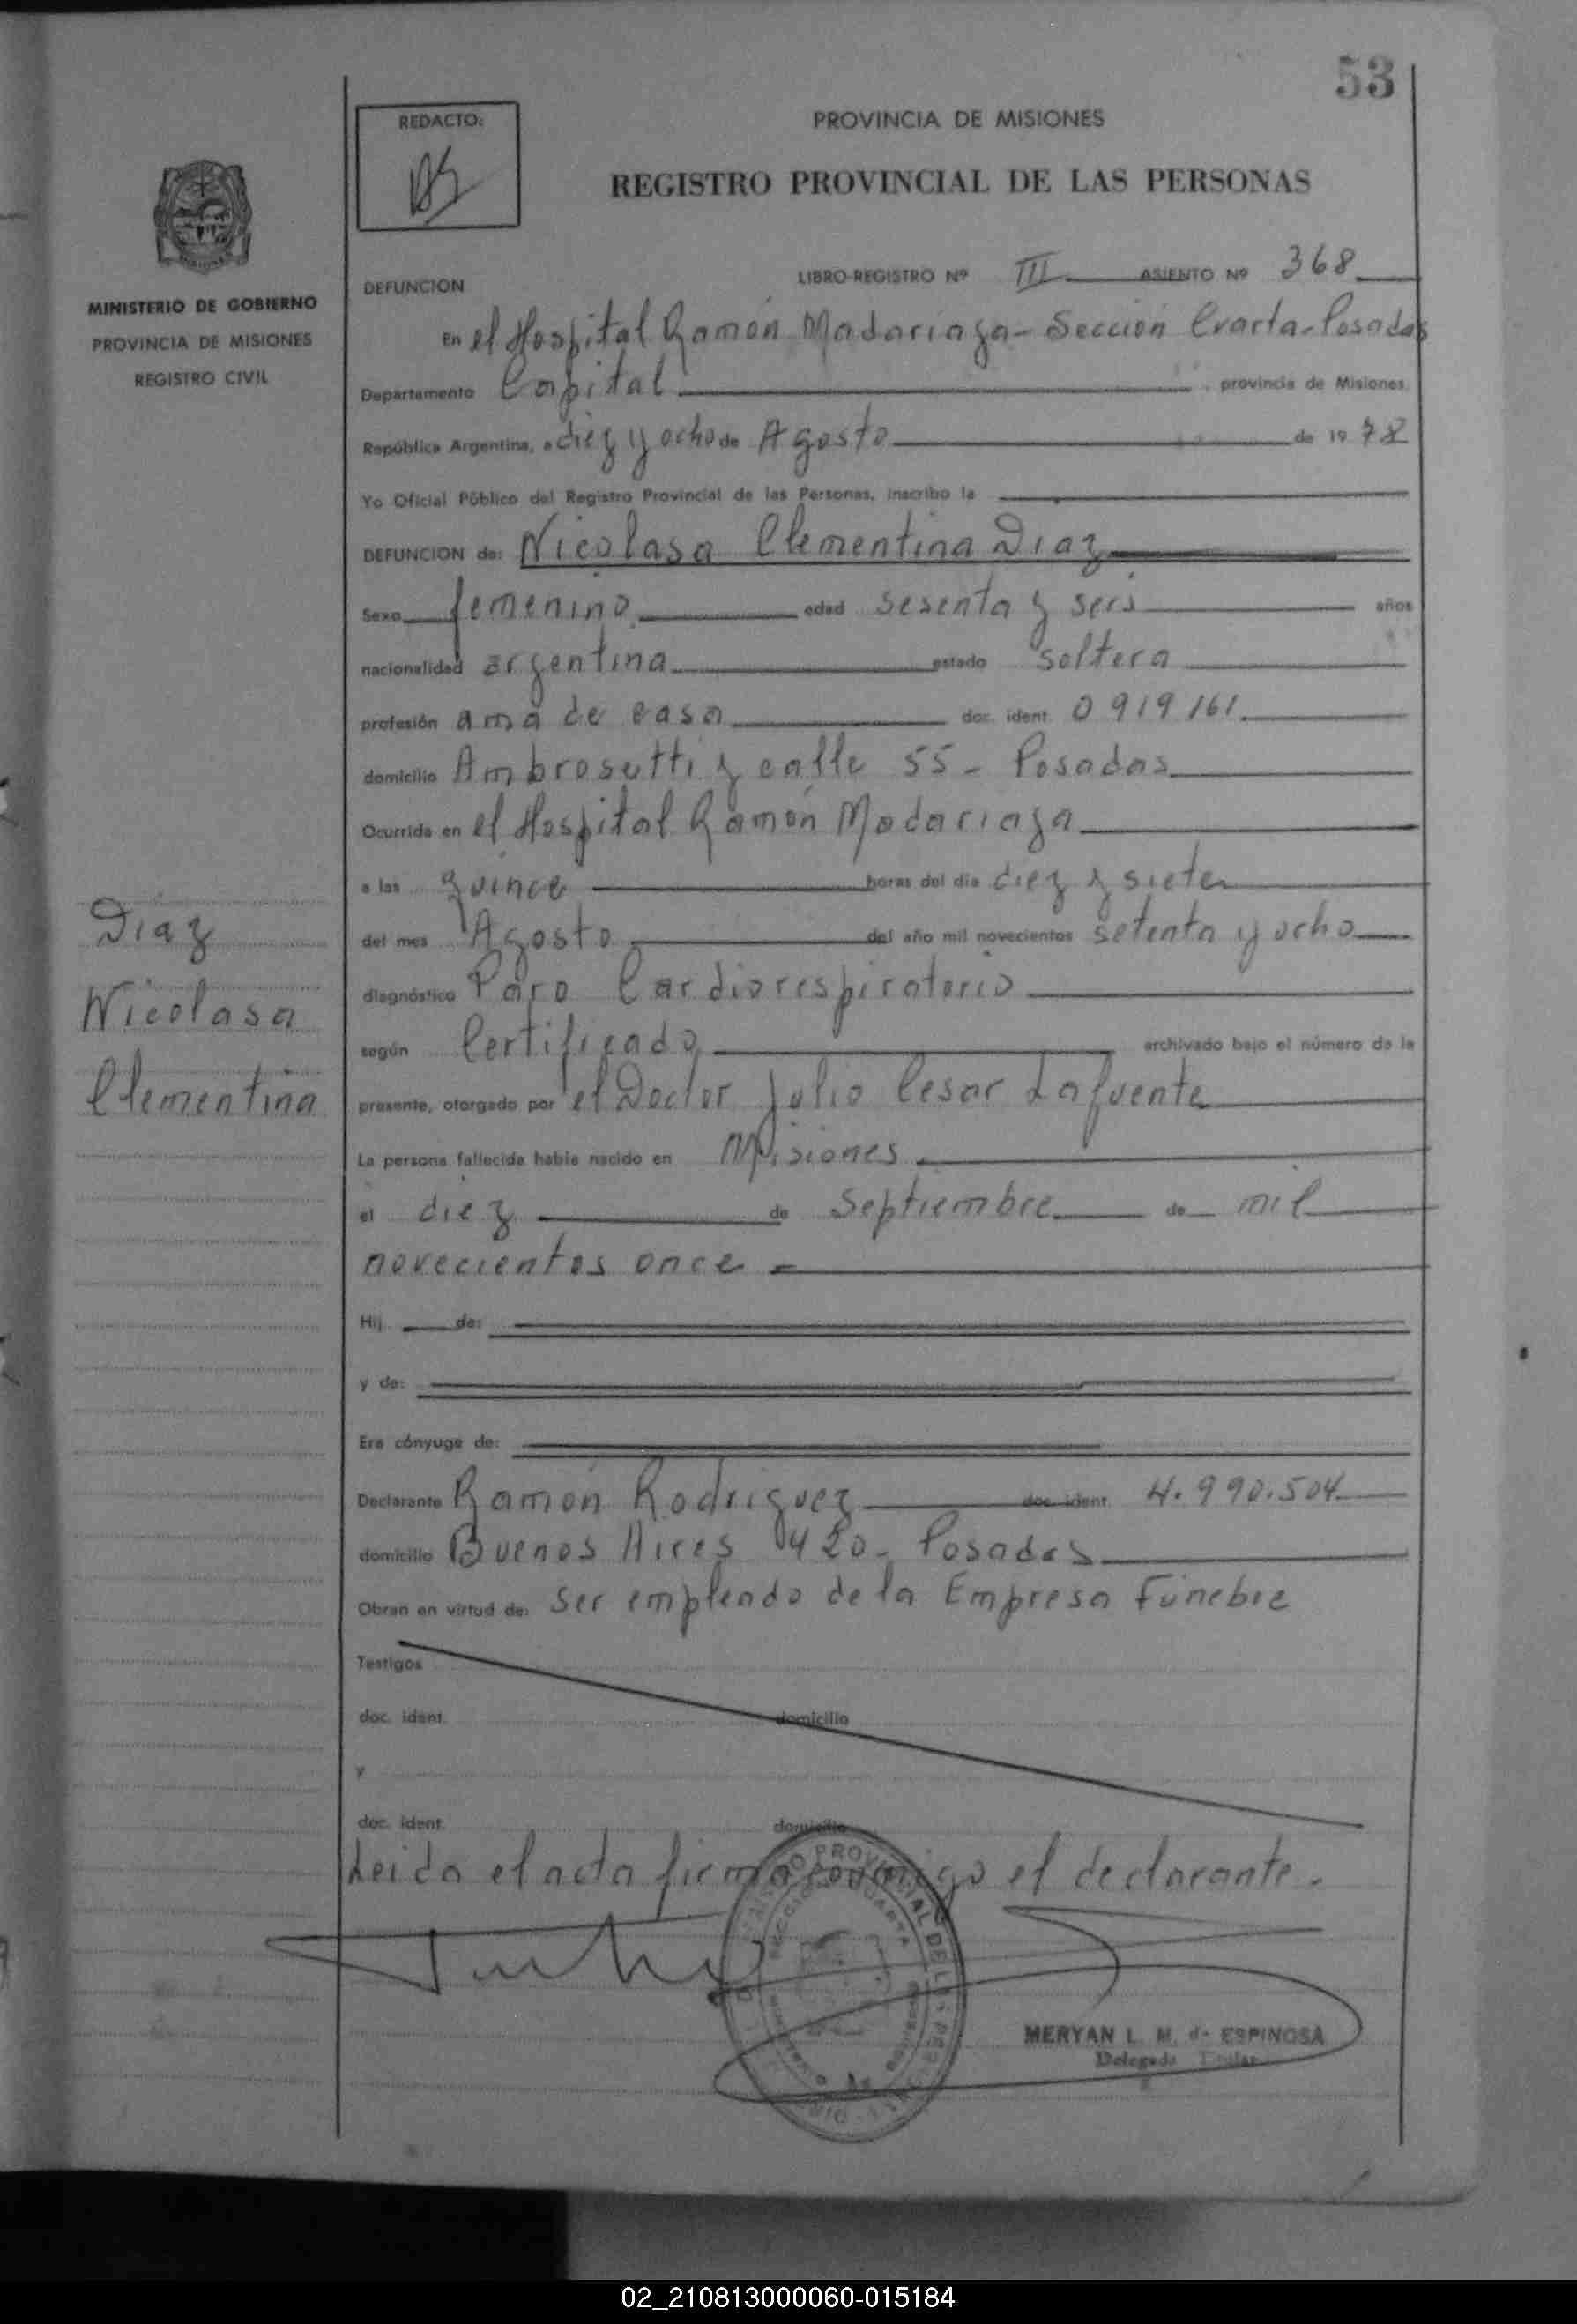 53
REDACTO:
PROVINCIA DE MISIONES
REGISTRO PROVINCIAL DE LAS PERSONAS
MINISTERIO DE GOBIERNO
PROVINCIA DE MISIONES
REGISTRO CIVIL
LIBRO-REGISTRO Nº III ASIENTO Nº 368
DEFUNCION
En el Hospital Ramón Madariaga - Sección Cuarta - Posadas
Departamento Capital , provincia de Misiones,
República Argentina, a diez y ocho de Agosto de 19 78
Yo Oficial Público del Registro Provincial de las Personas, inscribo la
DEFUNCION de: Nicolasa Clementina Diaz
Sexo femenino edad sesenta y seis años
nacionalidad argentina estado soltera
profesión ama de casa doc. ident. 0919161
domicilio Ambrosetti y calle 55 - Posadas
Ocurrida en el Hospital Ramón Madariaga
a las quince horas del día diez y siete
del mes Agosto del año mil novecientos setenta y ocho
diagnóstico Paro Cardiorespiratorio
según Certificado archivado bajo el número de la
presente, otorgado por el Doctor Julio Cesar Lafuente
La persona fallecida había nacido en Misiones
el diez de Septiembre de mil
novecientos once -
Hij de:
y de:
Era cónyuge de:
Declarante Ramón Rodriguez doc. ident. 4.990.504
domicilio Buenos Aires 420 - Posadas
Obran en virtud de: ser empleado de la Empresa Fúnebre
Testigos
doc. ident. domicilio
y
doc. ident. domicilio
Leida el acta firma conmigo el declarante.
Diaz
Nicolasa
Clementina
MERYAN L. M. de ESPINOSA
Delegada Titular
02_210813000060-015184